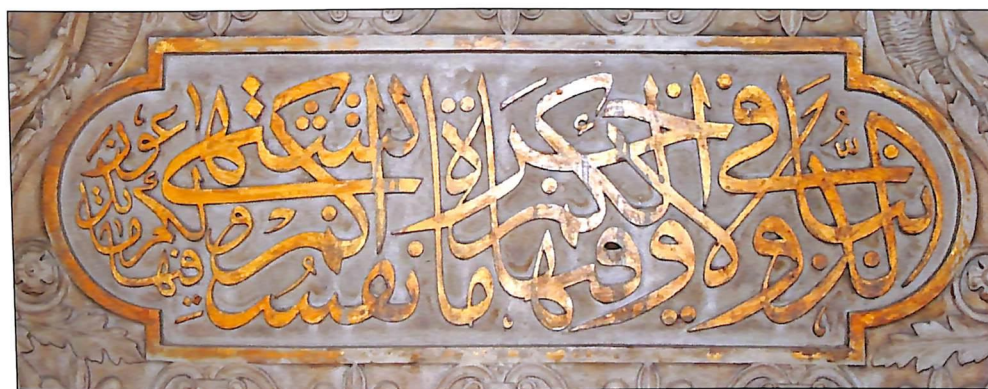 الدنيا وفي الآخرة ولكم فيها ما تشتهي أنفسكم ولكم فيها ما تدعون